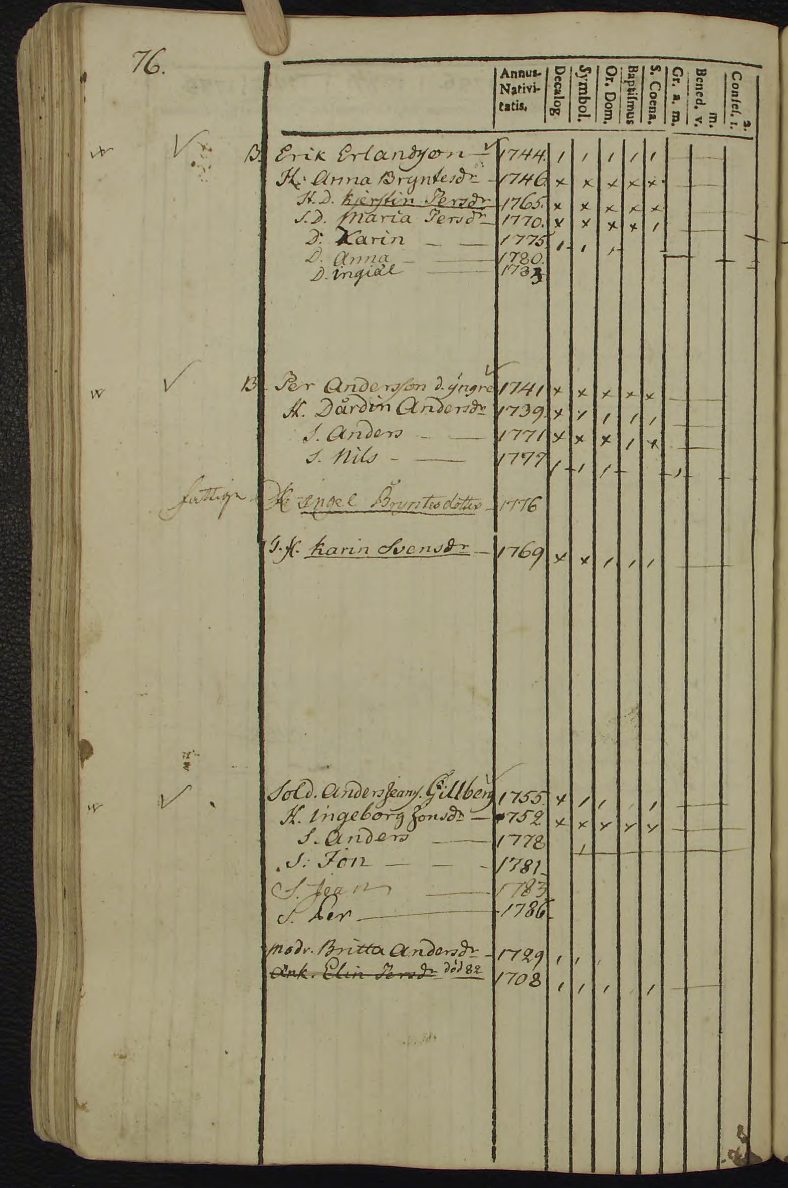 76.
Annus Nativitatis. Decalog. Symbol. Or. Dom. Baptismus S. Coena. Gr. a. m. Bened. v. m. Confes. 1. 2.
B. Erik Erlandson 1744.
H: Anna Bryntesdr 1746
H.D. Kierstin Persdr 1765.
S.D. Maria Persdr 1770.
D: Karin 1775
D. Anna 1780.
D. Ingiäl 1783
B. Per Andersson d. yngre 1741
H. Dårdin Andersdr 1739
S. Anders 1771
S. Nils 1777
fattige H. Ingel Bryntesdotter 1776
I.H. Karin Svensdr 1769
Sold. Anders Jeans. Gillberg 1755.
H. Ingeborg Jonsdr 1752
S. Anders 1778
S: Jon 1781
S. Jean 1783
S. Per 1786
modr. Britta Andersdr 1729
Änk. Elin Persdr död 82 1708